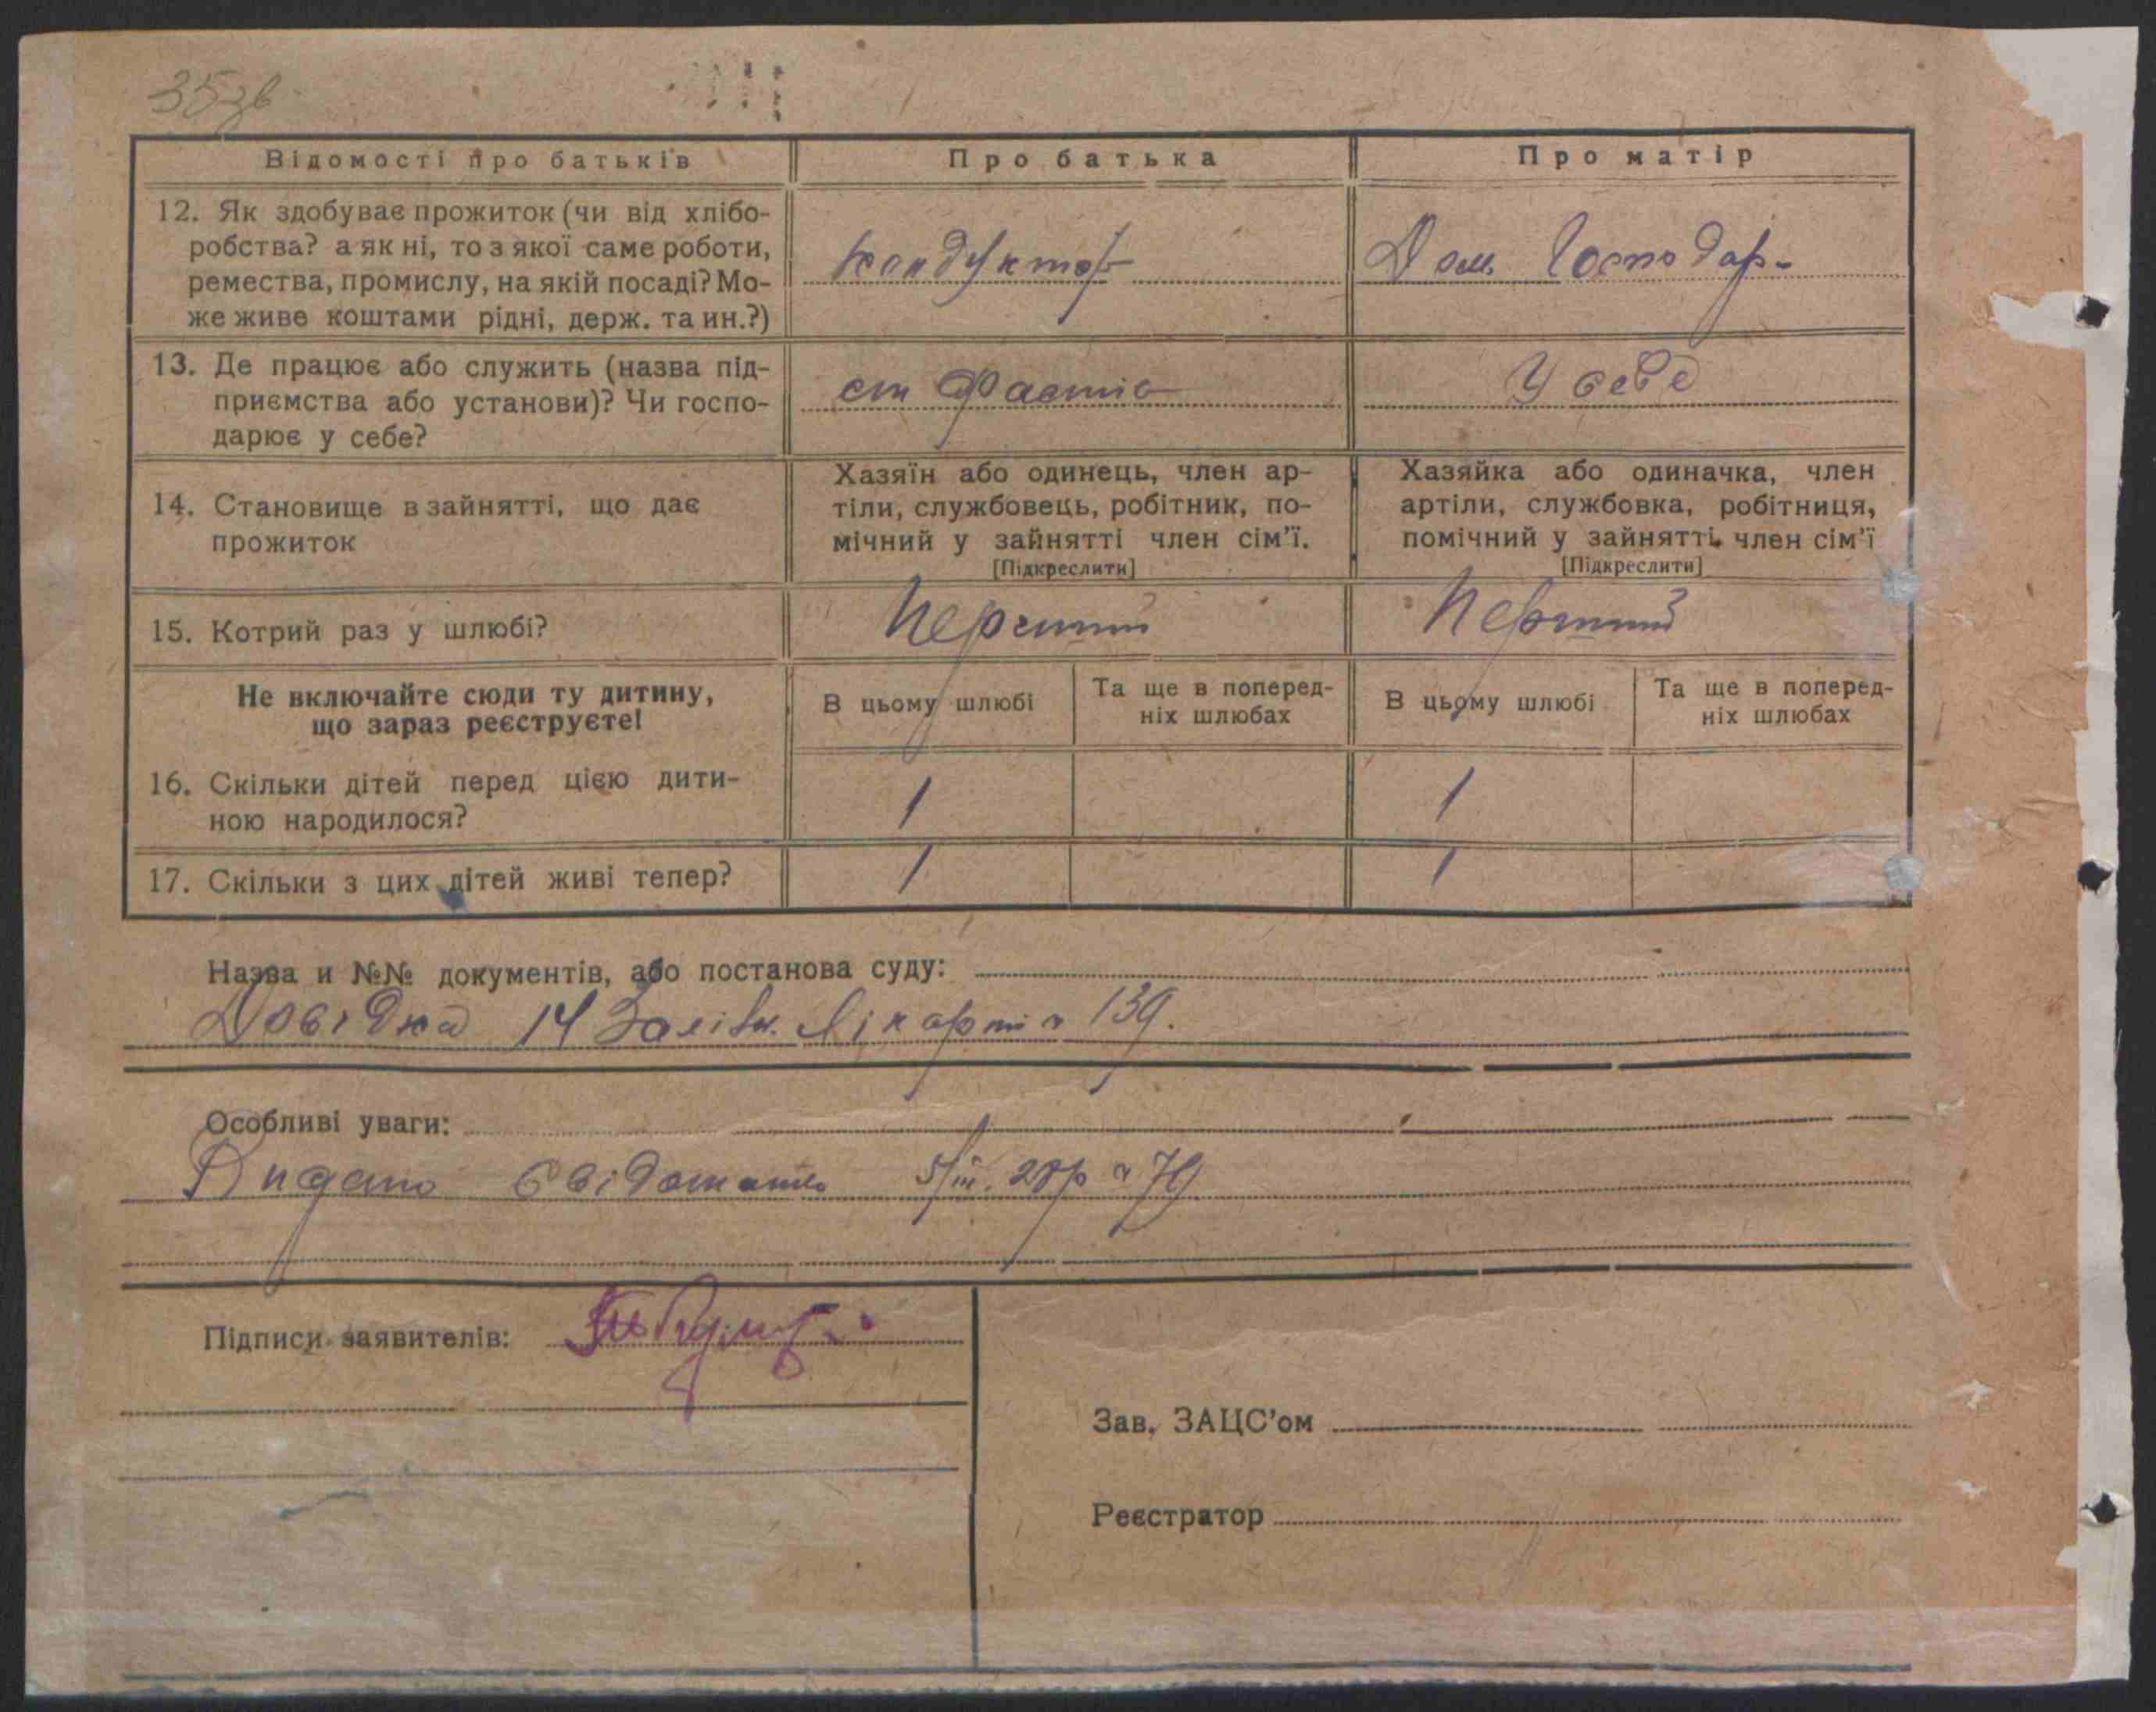 35зв
Відомості про батьків
Про батька
Про матір
12. Як здобуває прожиток (чи від хлібо-
робства? а як ні, то з якої саме роботи,
ремества, промислу, на якій посаді? Мо-
же живе коштами рідні, держ. та ин.?)
кондуктор
Дом. Господар-
13. Де працює або служить (назва під-
приємства або установи)? Чи госпо-
дарює у себе?
ст Фастів
У себе
14. Становище в зайнятті, що дає
прожиток
Хазяїн або одинець, член ар-
тіли, службовець, робітник, по-
мічний у зайнятті член сім'ї.
[Підкреслити]
Хазяйка або одиначка, член
артіли, службовка, робітниця,
помічний у зайнятті член сім'ї
[Підкреслити]
15. Котрий раз у шлюбі?
Перший
Перший
Не включайте сюди ту дитину,
що зараз реєструєте!
В цьому шлюбі
Та ще в поперед-
ніх шлюбах
В цьому шлюбі
Та ще в поперед-
ніх шлюбах
16. Скільки дітей перед цією дити-
ною народилося?
1
1
17. Скільки з цих дітей живі тепер?
1
1
Назва и №№ документів, або постанова суду:
Довідка 14 Залізн. Лікарні 139.
Особливі уваги:
Видано свідоцтво 5/III. 28р 79
Підписи заявителів:
Зав. ЗАЦС'ом
Реєстратор